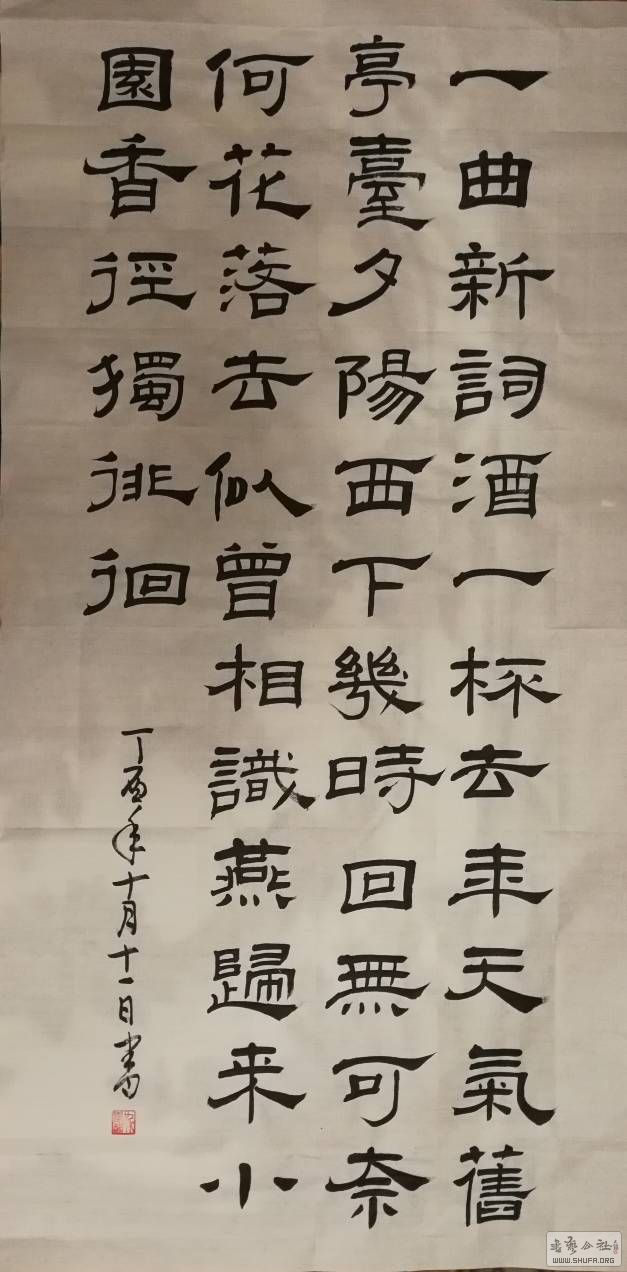 一曲新詞酒一杯去年天氣舊
亭臺夕陽西下幾時回無可奈
何花落去似曾相識燕歸来小
園香徑獨徘徊
丁酉年十月十一日書
书艺公社
WWW.SHUFA.ORG